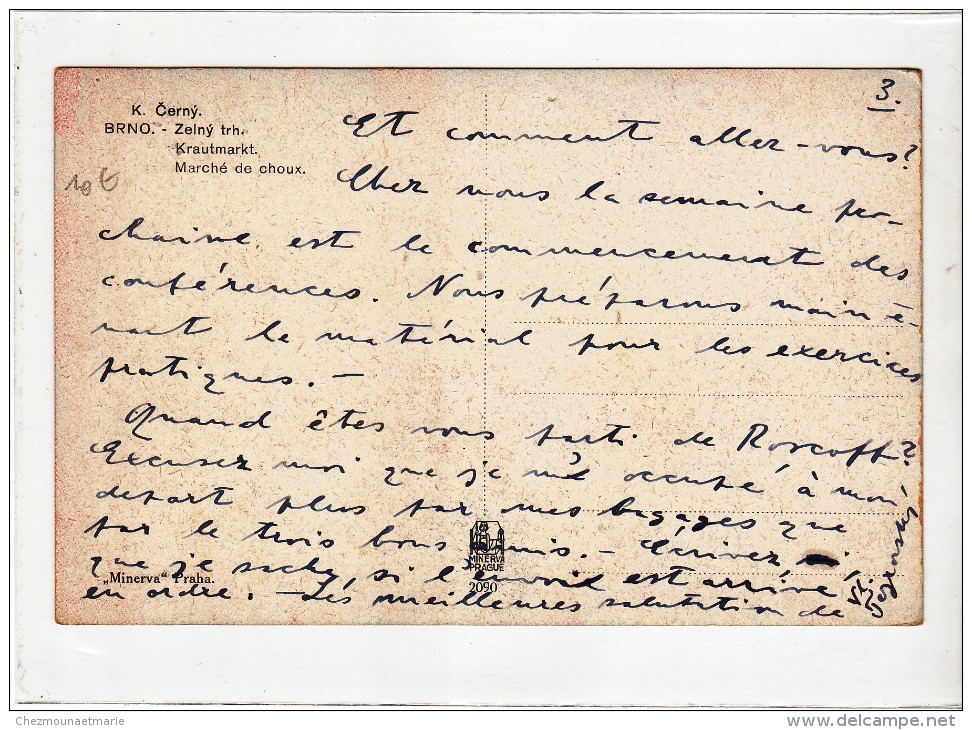 3.
K. Černý.
BRNO. - Zelný trh.
Krautmarkt.
Marché de choux.
10 €
Et comment allez-vous?
Chez nous la semaine pro-
chaine est le commencement des
conférences. Nous préparons mainte-
nant le matérial pour les exercices
pratiques. -
Quand êtes vous parti de Roscoff?
Excusez moi que je m'é occupé à mon
depart plus par mes bagages que
par le trois bons amis. - Écrivez,
que je sache, si l'envoie est arrivé
en ordre. - Les meilleures salutation de
„Minerva“ Praha.
MINERVA
PRAGUE
2090
Chezmounaetmarie
delcampe.net